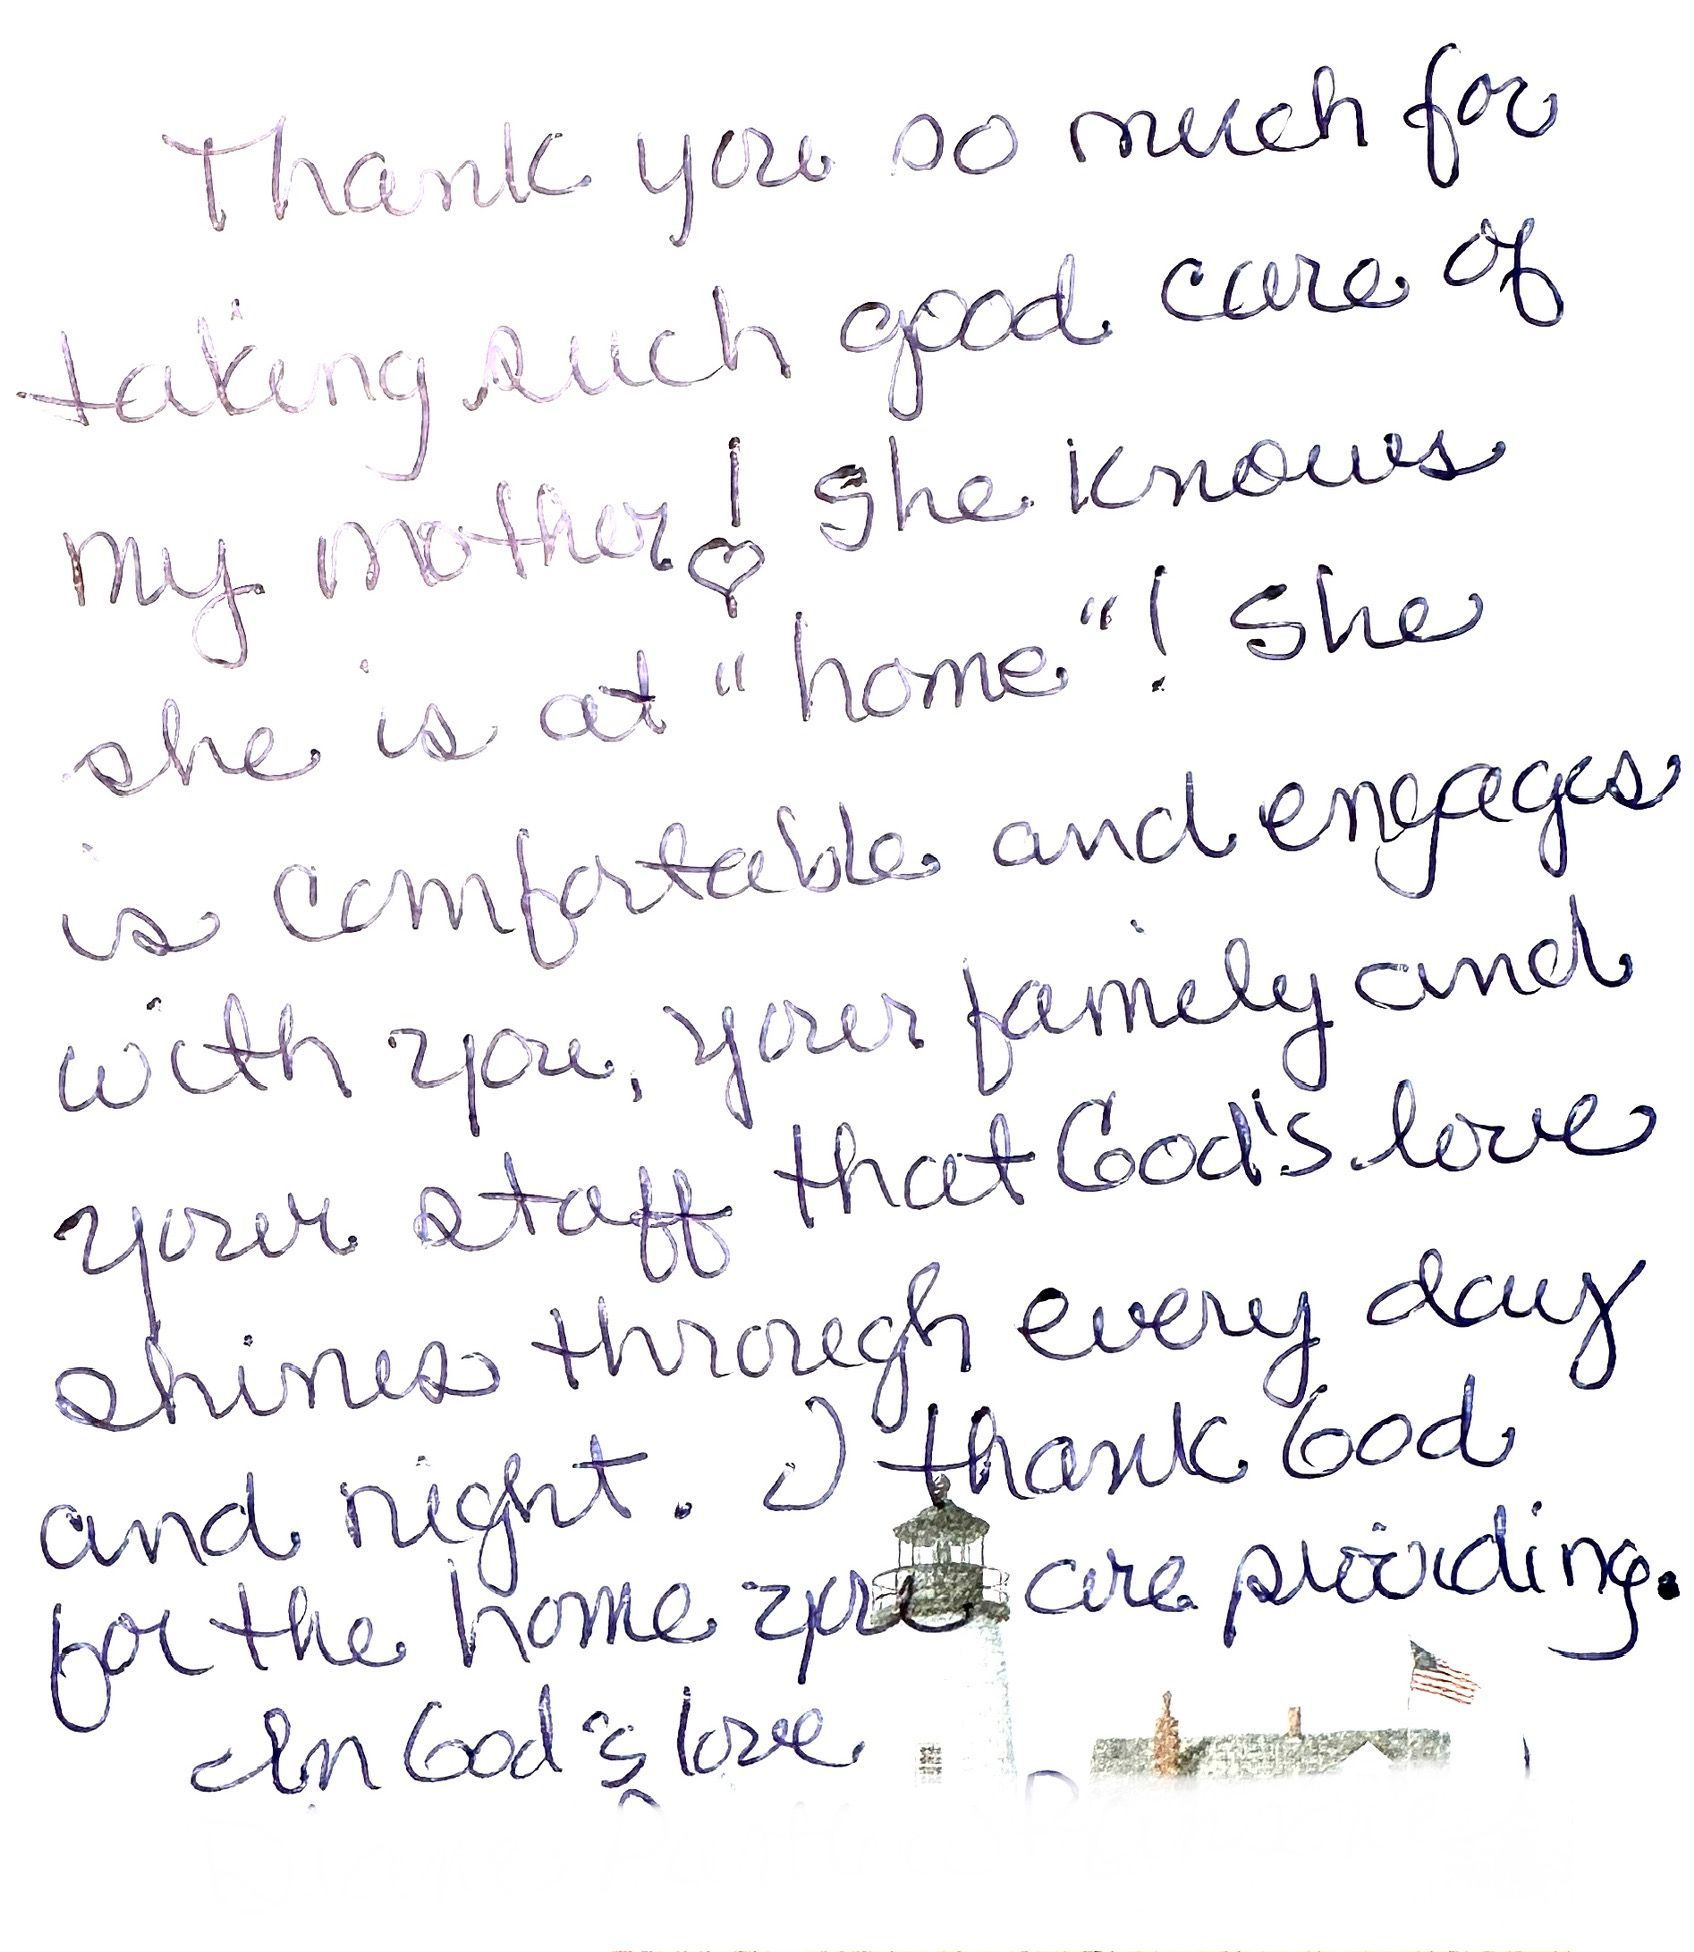 Thank you so much for
taking such good care of
my mother! She knows
she is at "home"! She
is comfortable and engages
with you, your family and
your staff that God's love
shines through every day
and night. I thank God
for the home you are providing.
In God's love